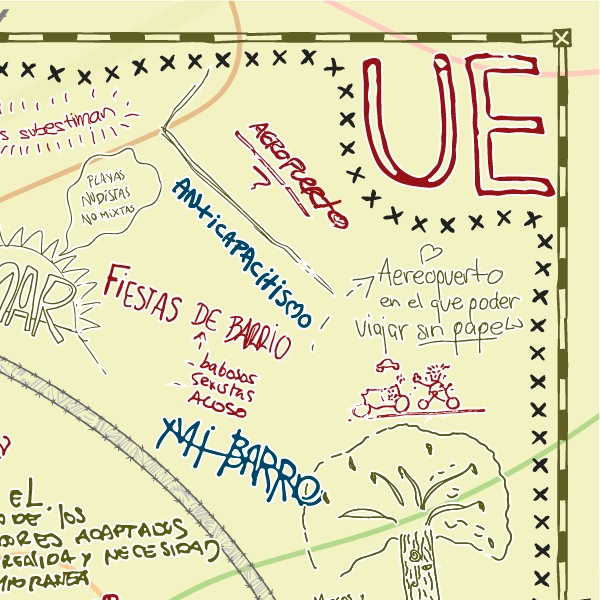 UE
subestiman
AEROPUERTO
?
PLAYAS
NUDISTAS
NO MIXTAS
ANTICAPACITISMO
MAR
Aereopuerto
en el que poder
viajar sin papeles
FIESTAS DE BARRIO
- babosos
- sexistas
- ACOSO
MI BARRIO
EL
DE LOS
ADAPTADOS
Y NECESIDAD